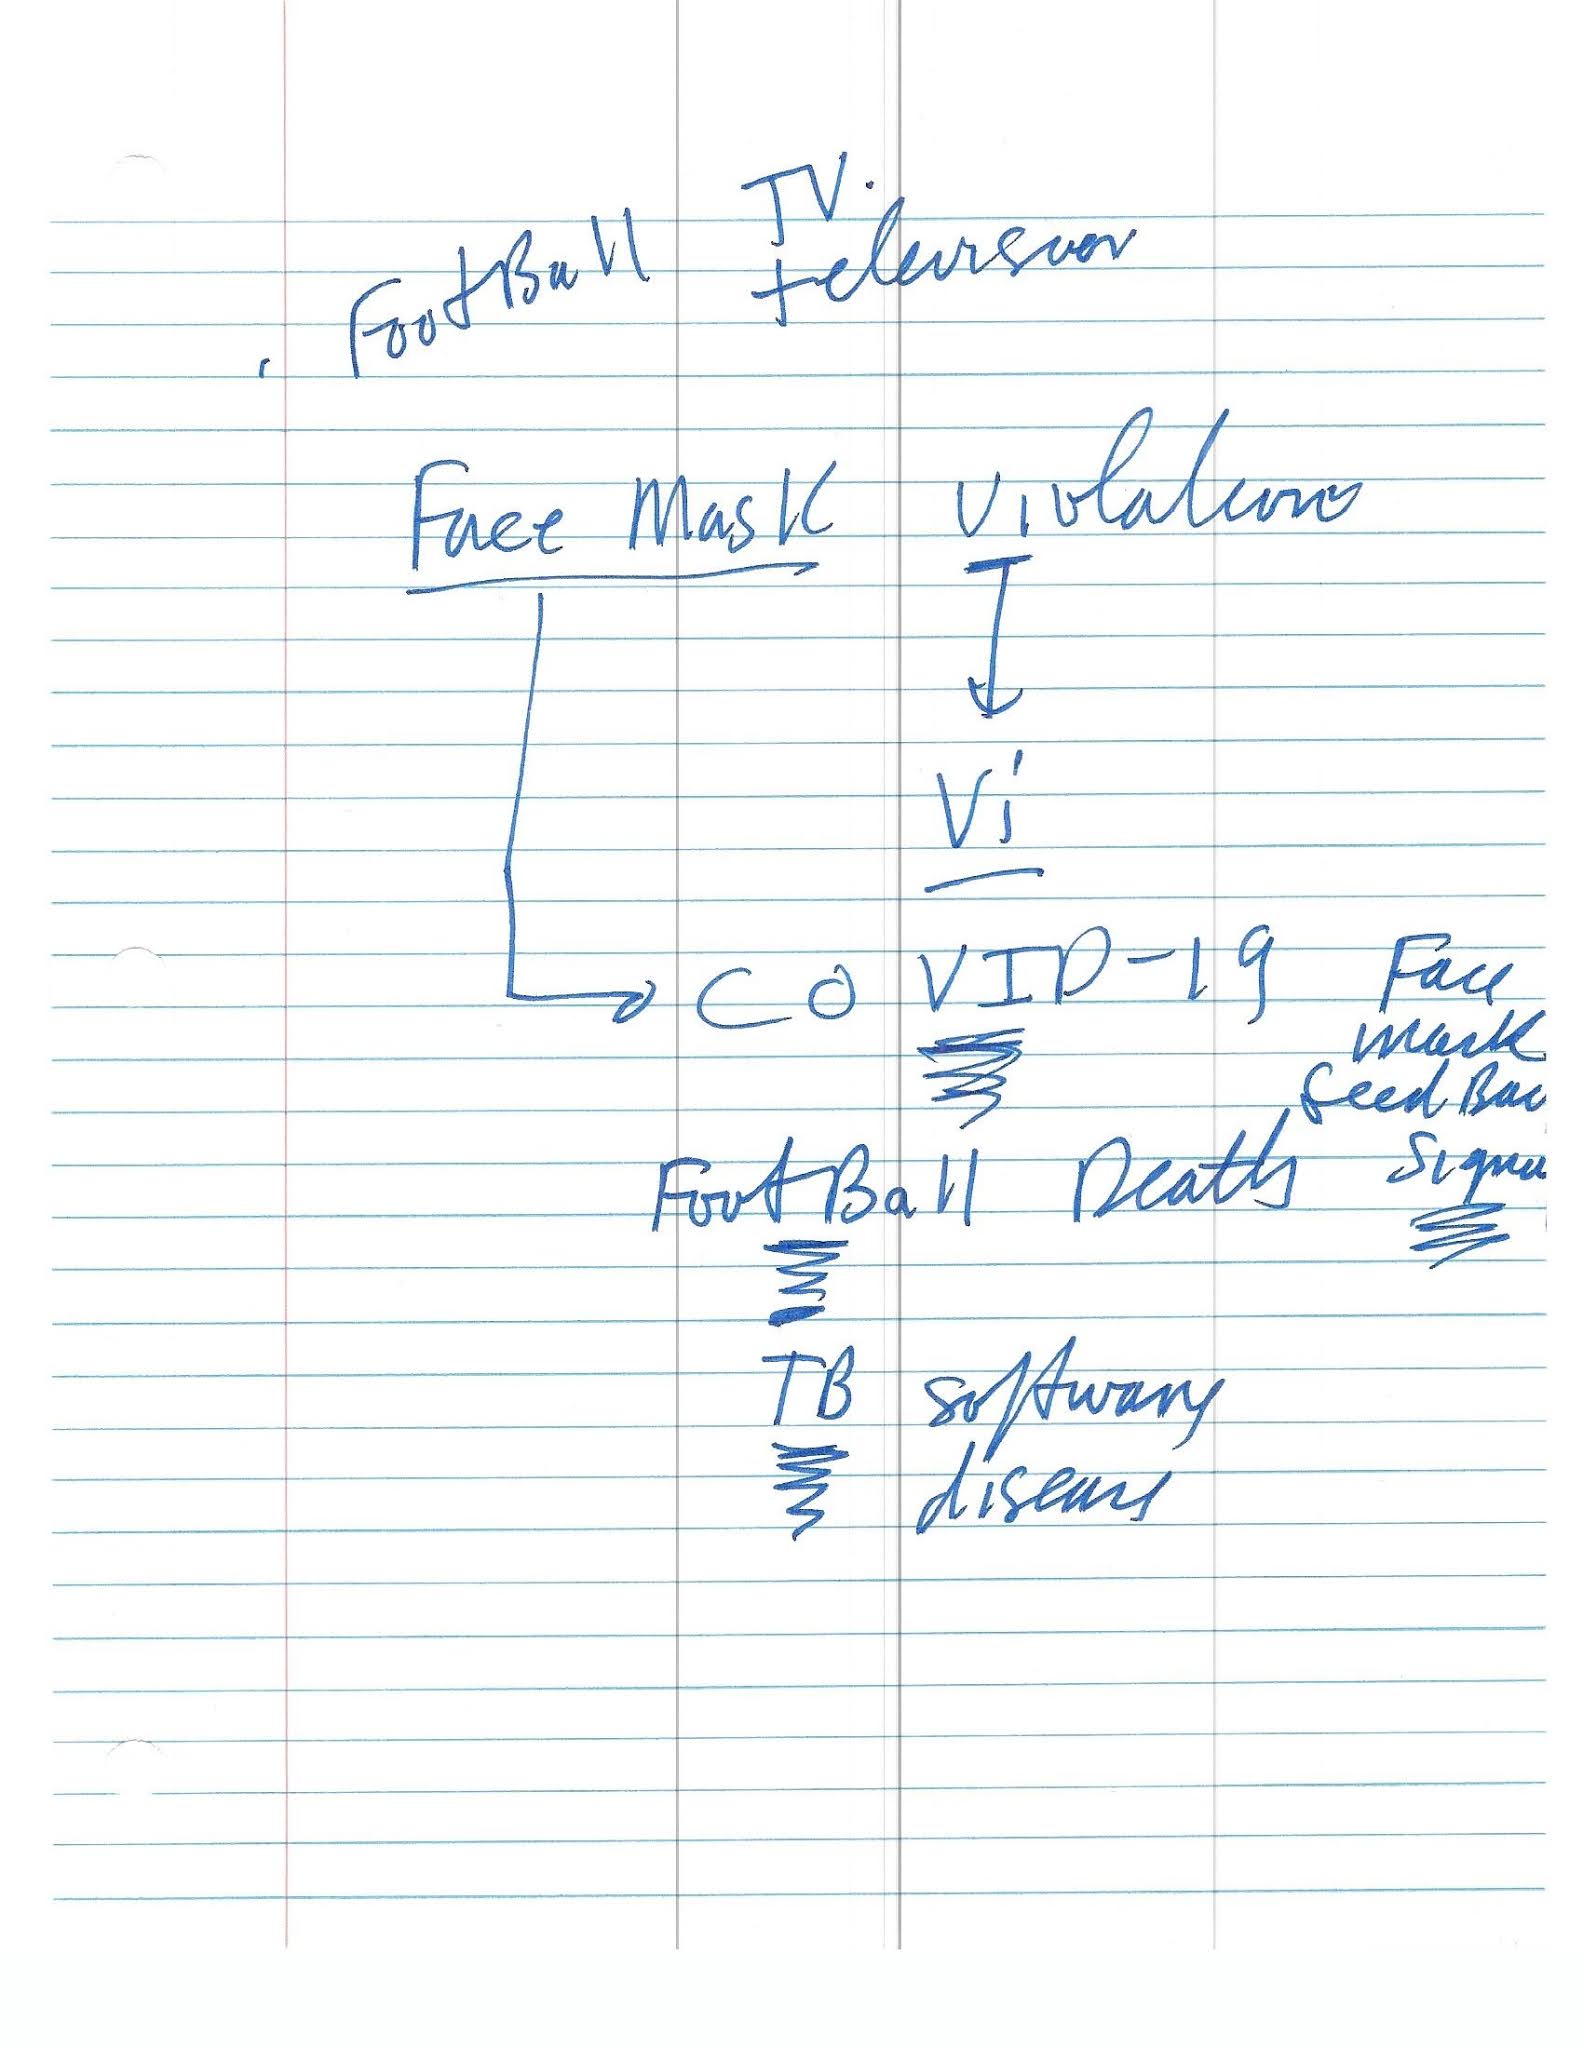 TV.
FootBall television
Face Mask violations
Vi
COVID-19 Face
mask
feed Bac
FootBall Death Signa
TB software
disease